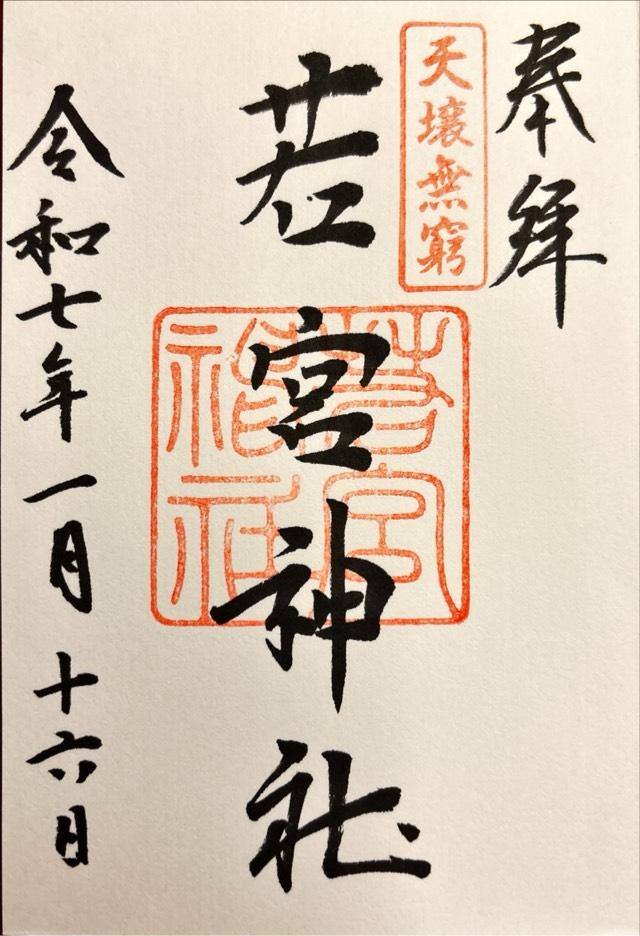 奉拝
天壌無窮
若宮神社
若宮神社
令和七年一月十六日